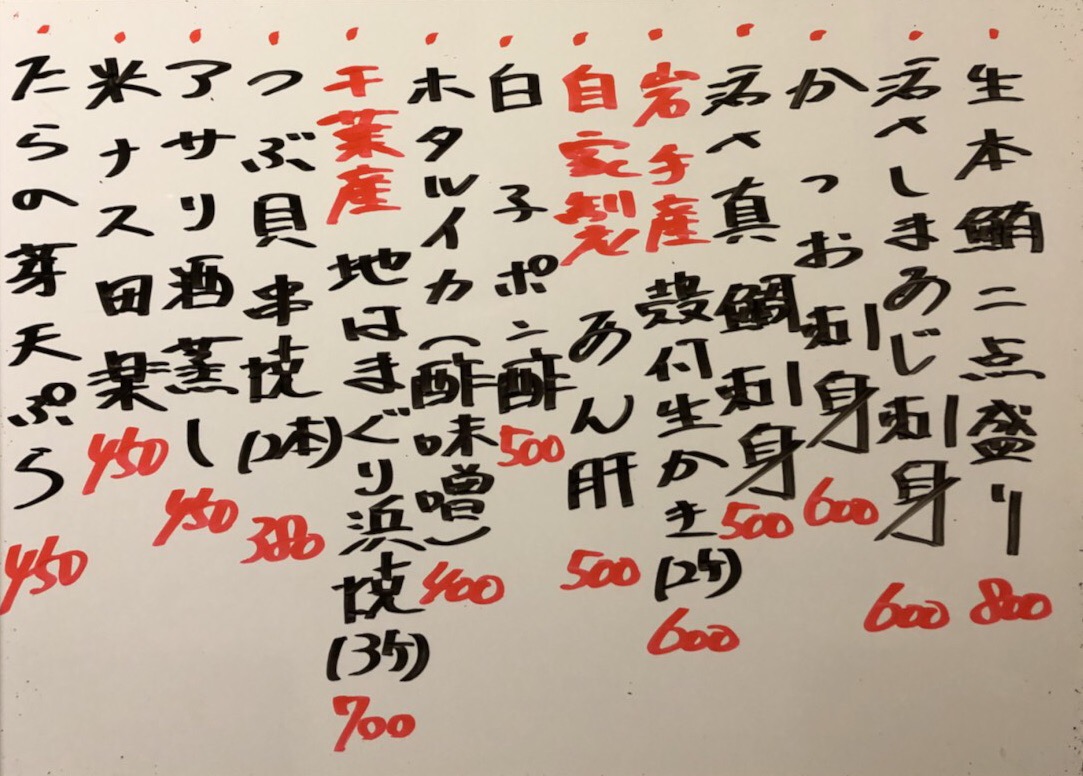 生本鮪二点盛り 800
活〆しまあじ刺身 600
かつお刺身 600
活〆真鯛刺身 500
岩手産 殻付生かき(2ケ) 600
自家製 あん肝 500
白子ポン酢 500
ホタルイカ(酢味噌) 400
千葉産 地はまぐり浜焼(3ケ) 700
つぶ貝串焼(2本) 380
アサリ酒蒸し 450
米ナス田楽 450
たらの芽天ぷら 450